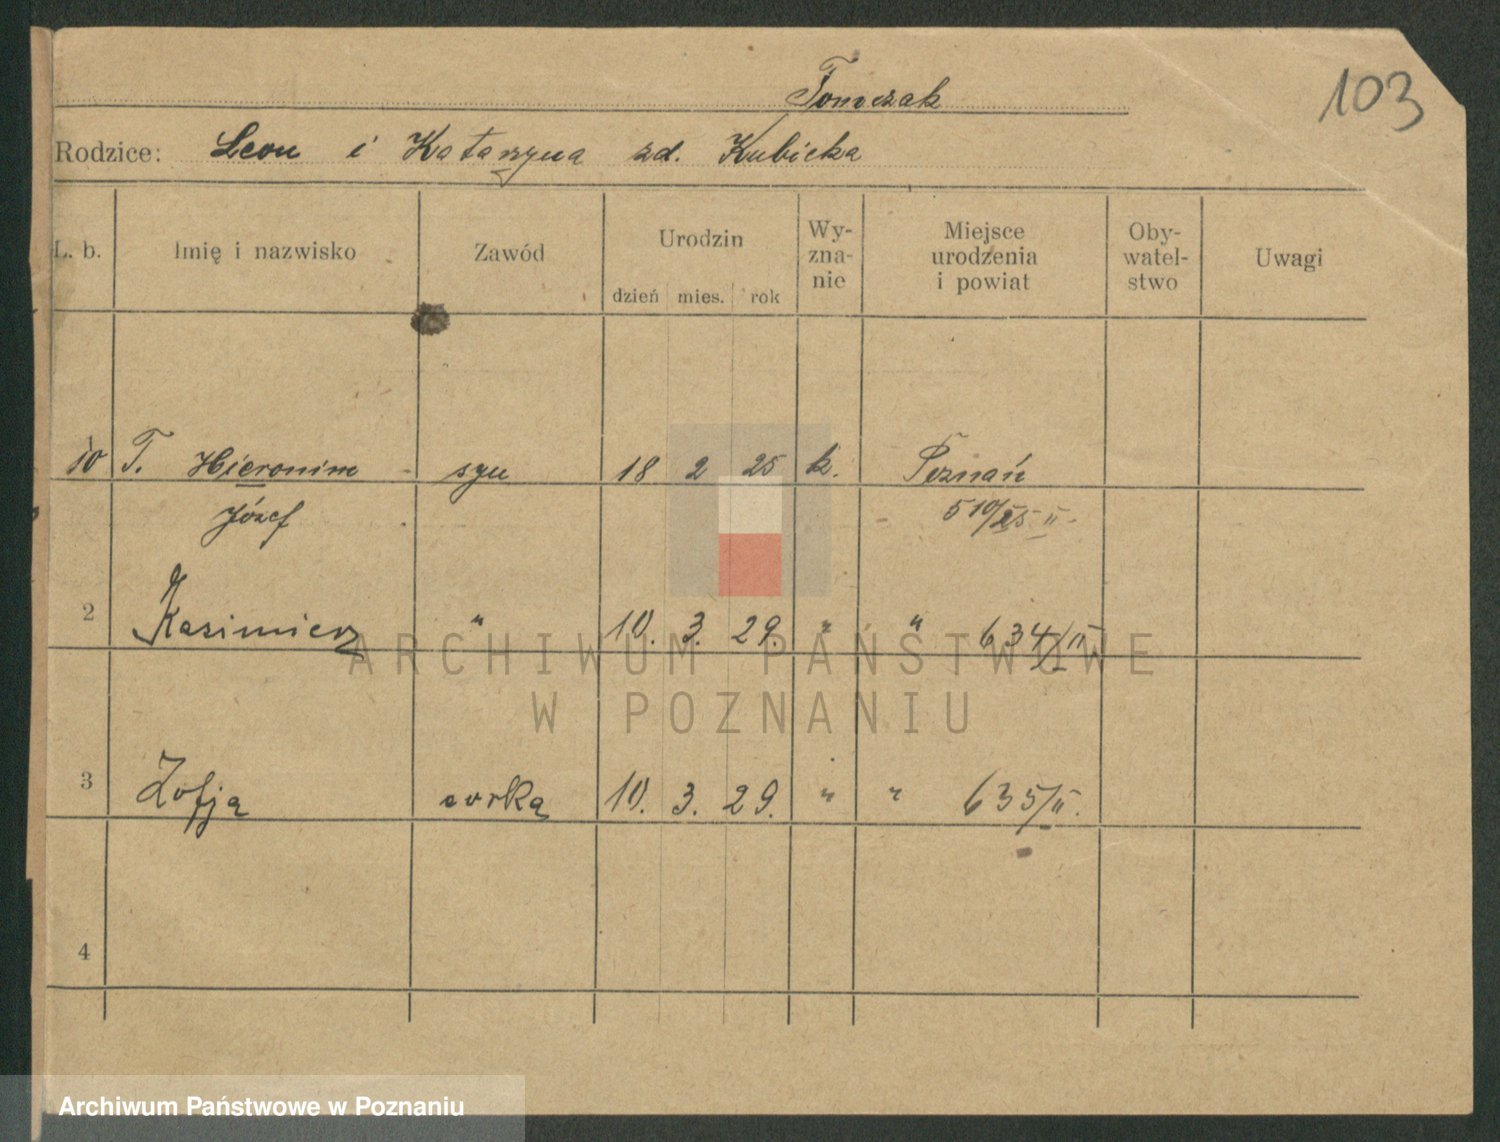 Tomczak
103
Rodzice: Leon i Katarzyna zd. Kubicka
L. b. Imię i nazwisko Zawód Urodzin dzień mies. rok Wy-zna-nie Miejsce urodzenia i powiat Oby-watel-stwo Uwagi
10 T. Hieronim syn 18 2 25 k. Poznań
Józef 510/25 II.
2 Kazimierz " 10. 3. 29. " " 634/II
ARCHIWUM PAŃSTWOWE
W POZNANIU
3 Zofja corka 10. 3. 29. " " 635/II.
4
Archiwum Państwowe w Poznaniu